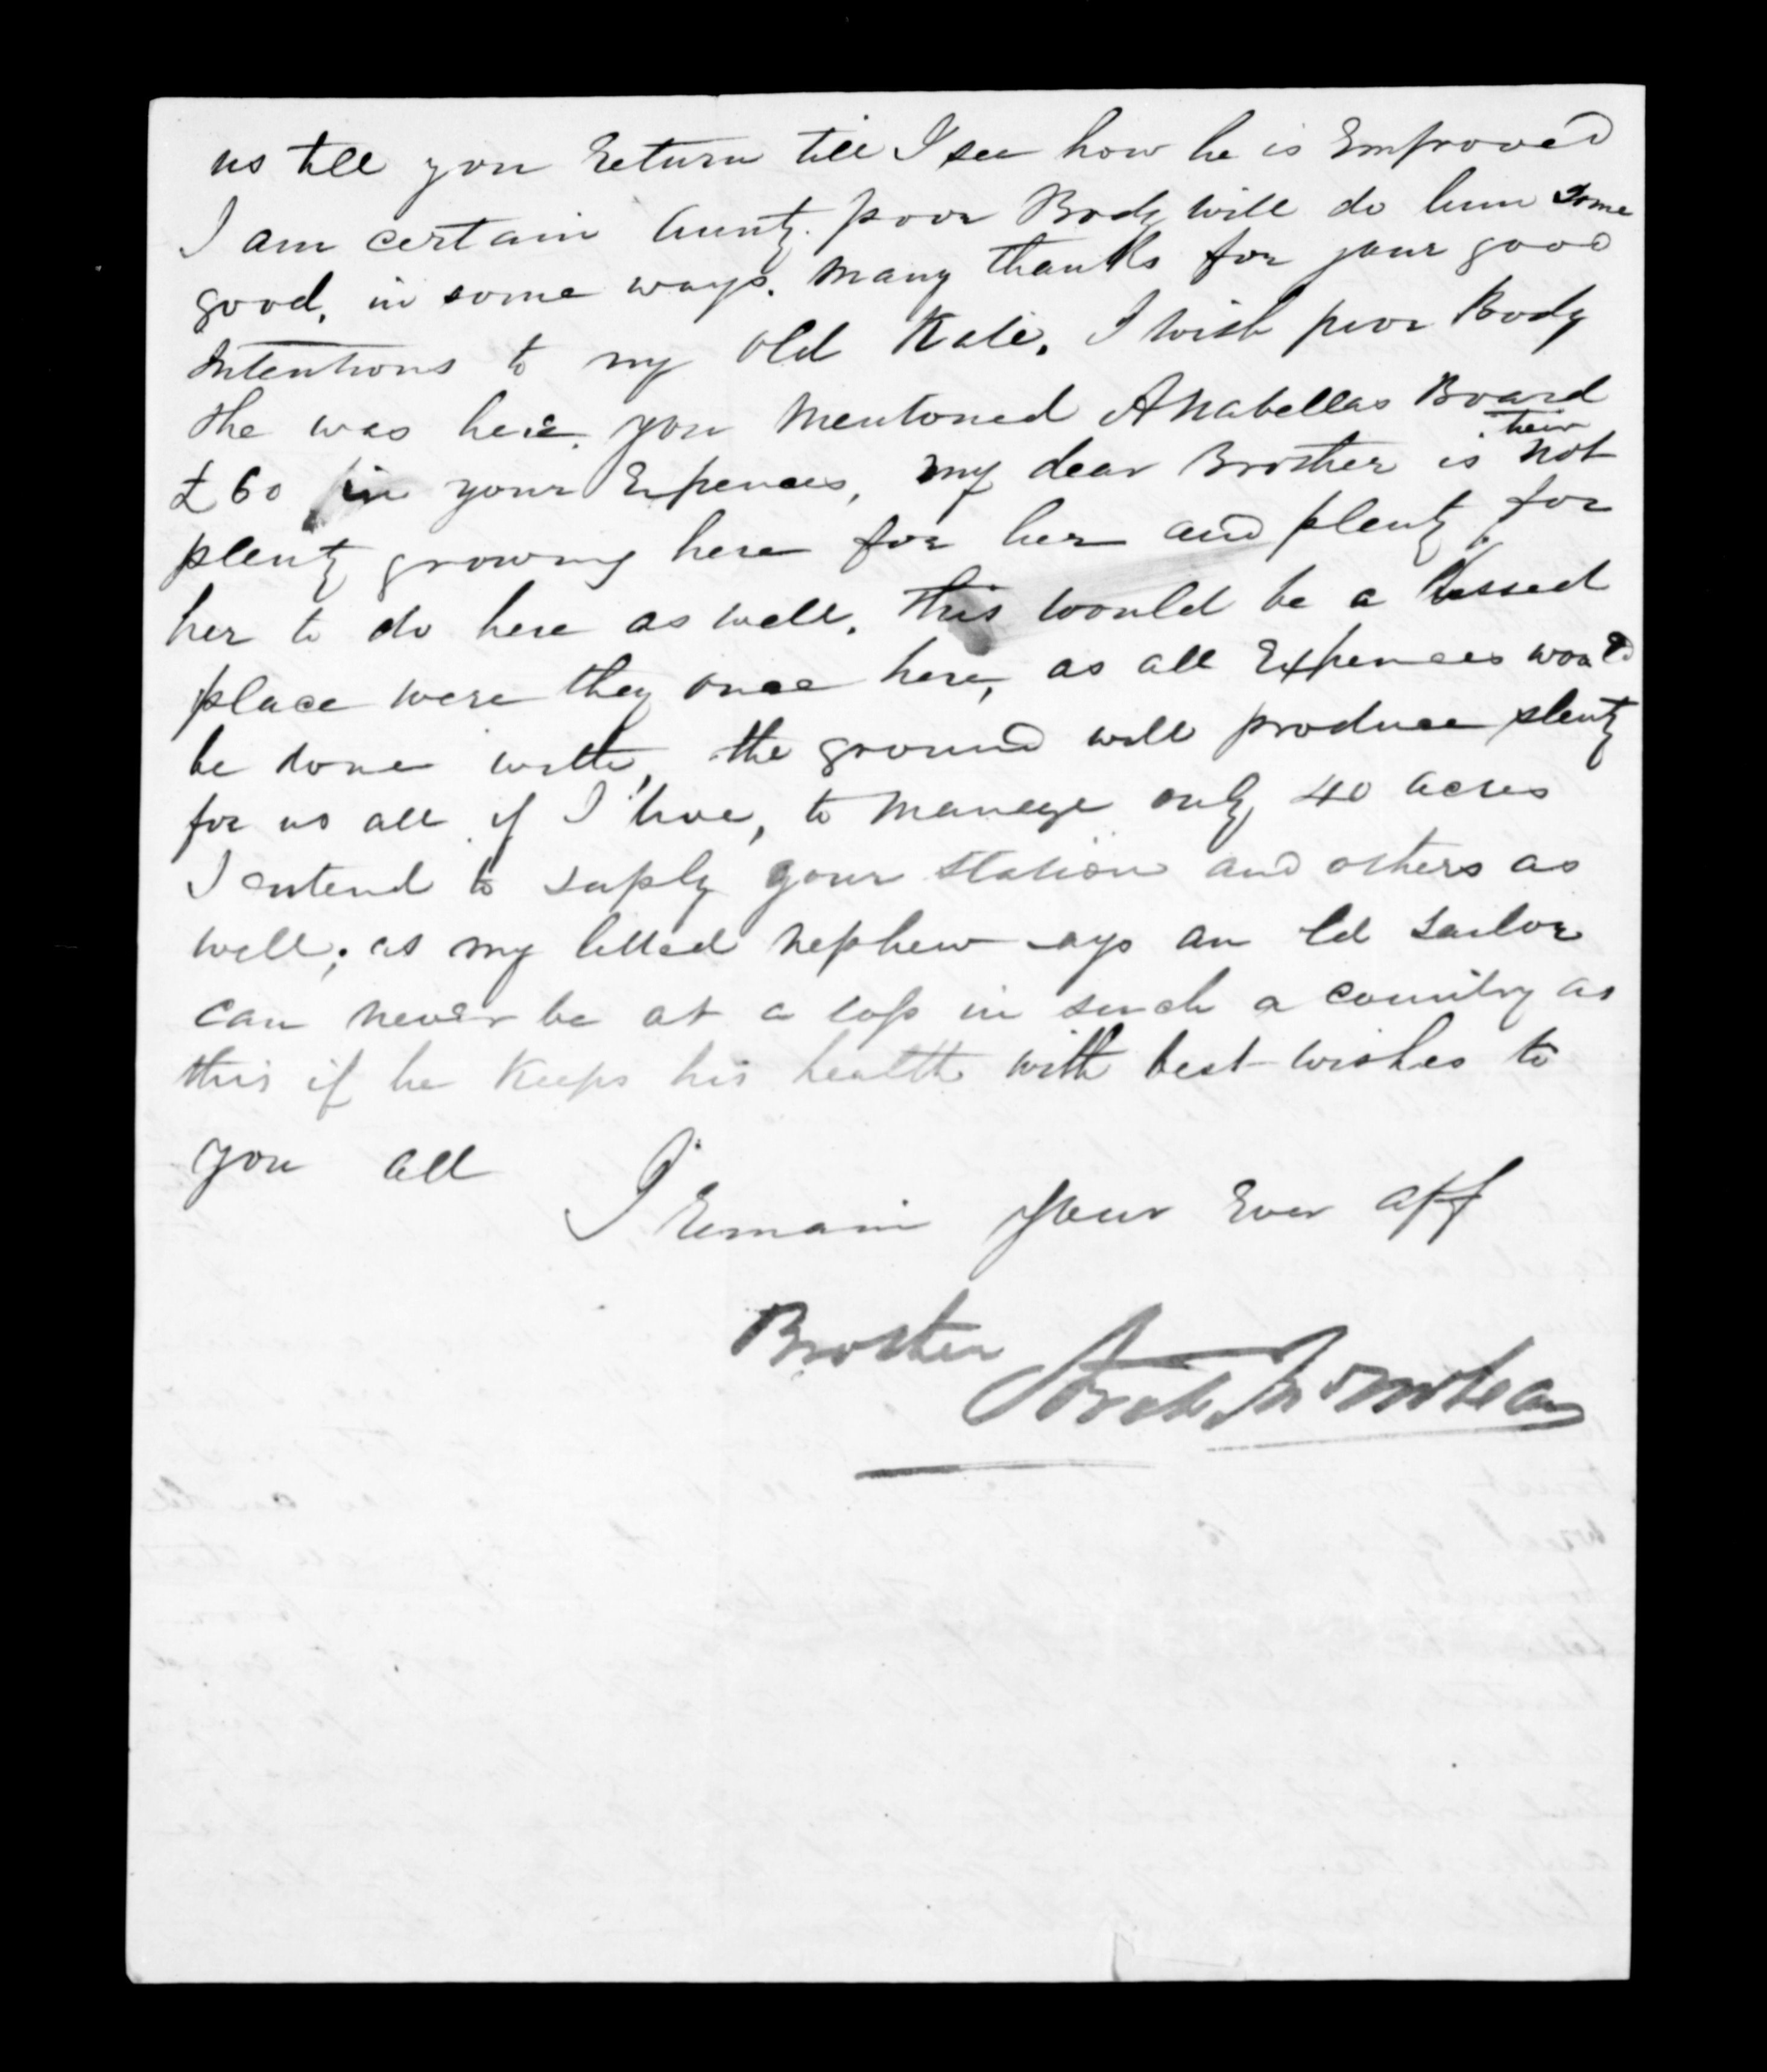 us till you Return till I see how he is Emproved
I am certain Aunty. poor Body will do him some
good, in some ways. Many thanks for your good
Intentions to my old Kate. I wish poor Body
she was here. you Mentoned Anabellas Board
£60 in your Expences, my dear Brother is their not
plenty growing here for her and plenty for
her to do here as well. this would be a blessed
place were they once here, as all Expences would
be done with, the ground will produce plenty
for us all if I live, to Manage only 40 acres
I entend to suply your station and others as
well; as my litted nephew says an old sailor
can never be at a loss in such a country as
this if he Keeps his health with best wishes to
you all
I Remain your Ever aff
Brother